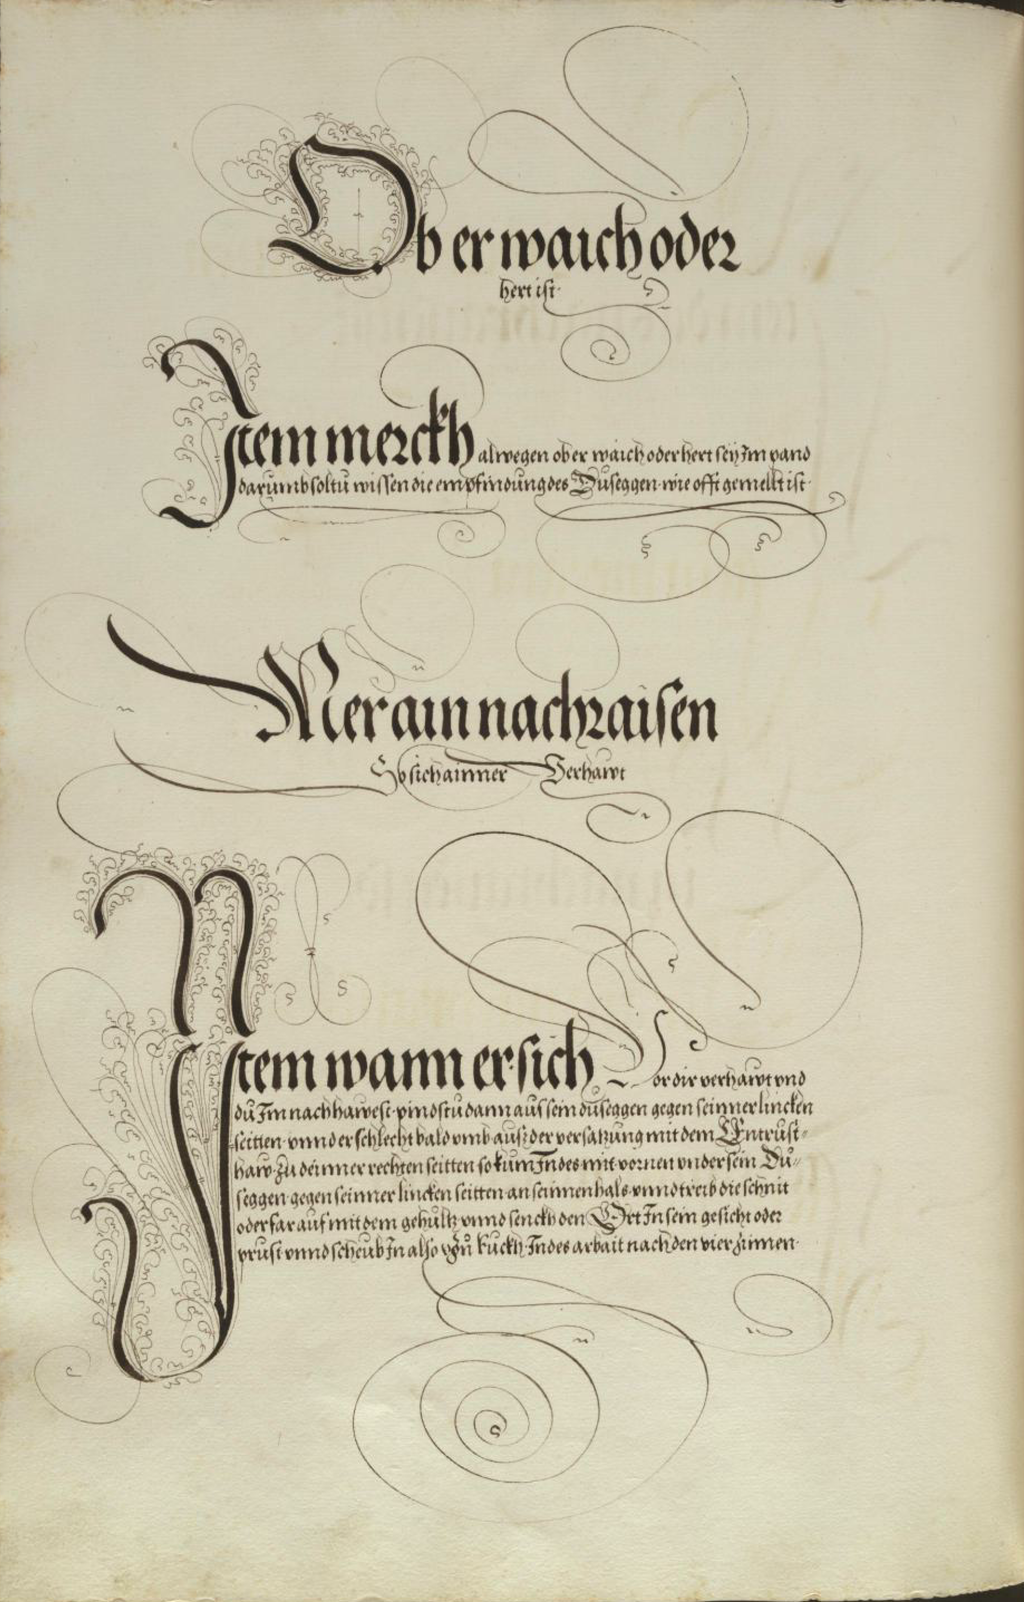 Ob er waich oder
hert ist
Item merckh alwegen ob er waich oder hert sey Im pand
darumb soltu wissen die empfindung des Duseggen wie offt gemellt ist
Mer ain nachraisen
So sich ainner Verhawt
Item wann er sich Vor dir verhawt vnd
du Im nachhawest pindstu dann auf sein duseggen gegen seinner lincken
seitten vnnd er schlecht bald vmb aus der versatzung mit dem Entrust
haw zu deinner rechten seitten so kum Indes mit vornen vnder sein Du
seggen gegen seinner lincken seitten an seinnen hals vnnd treib die schnit
oder far auf mit dem gehultz vnnd senckh den Ort In sein gesicht oder
prust vnnd scheub In also zu Ruckh Indes arbait nach den vier zinnen